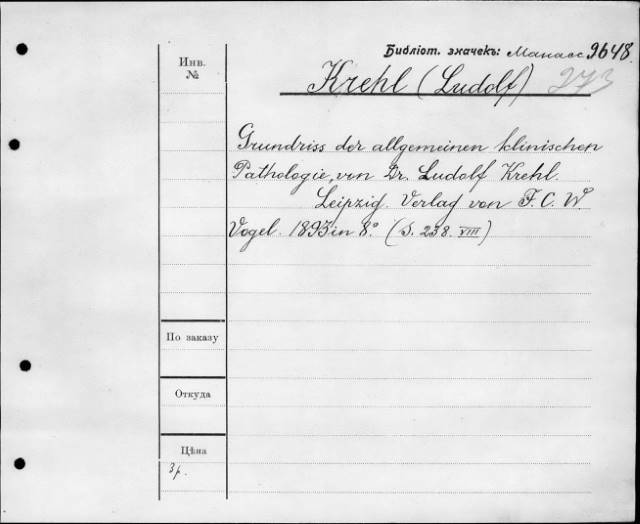 Библіот. значекъ: Манасс 9648.
Инв.
№
Krehl (Ludolf) 273
Grundriss der allgemeinen klinischen
Pathologie, von Dr. Ludolf Krehl.
Leipzig. Verlag von F. C. W.
Vogel. 1893 in 8° (S. 238. VIII)
По заказу
Откуда
Цѣна
3 р.